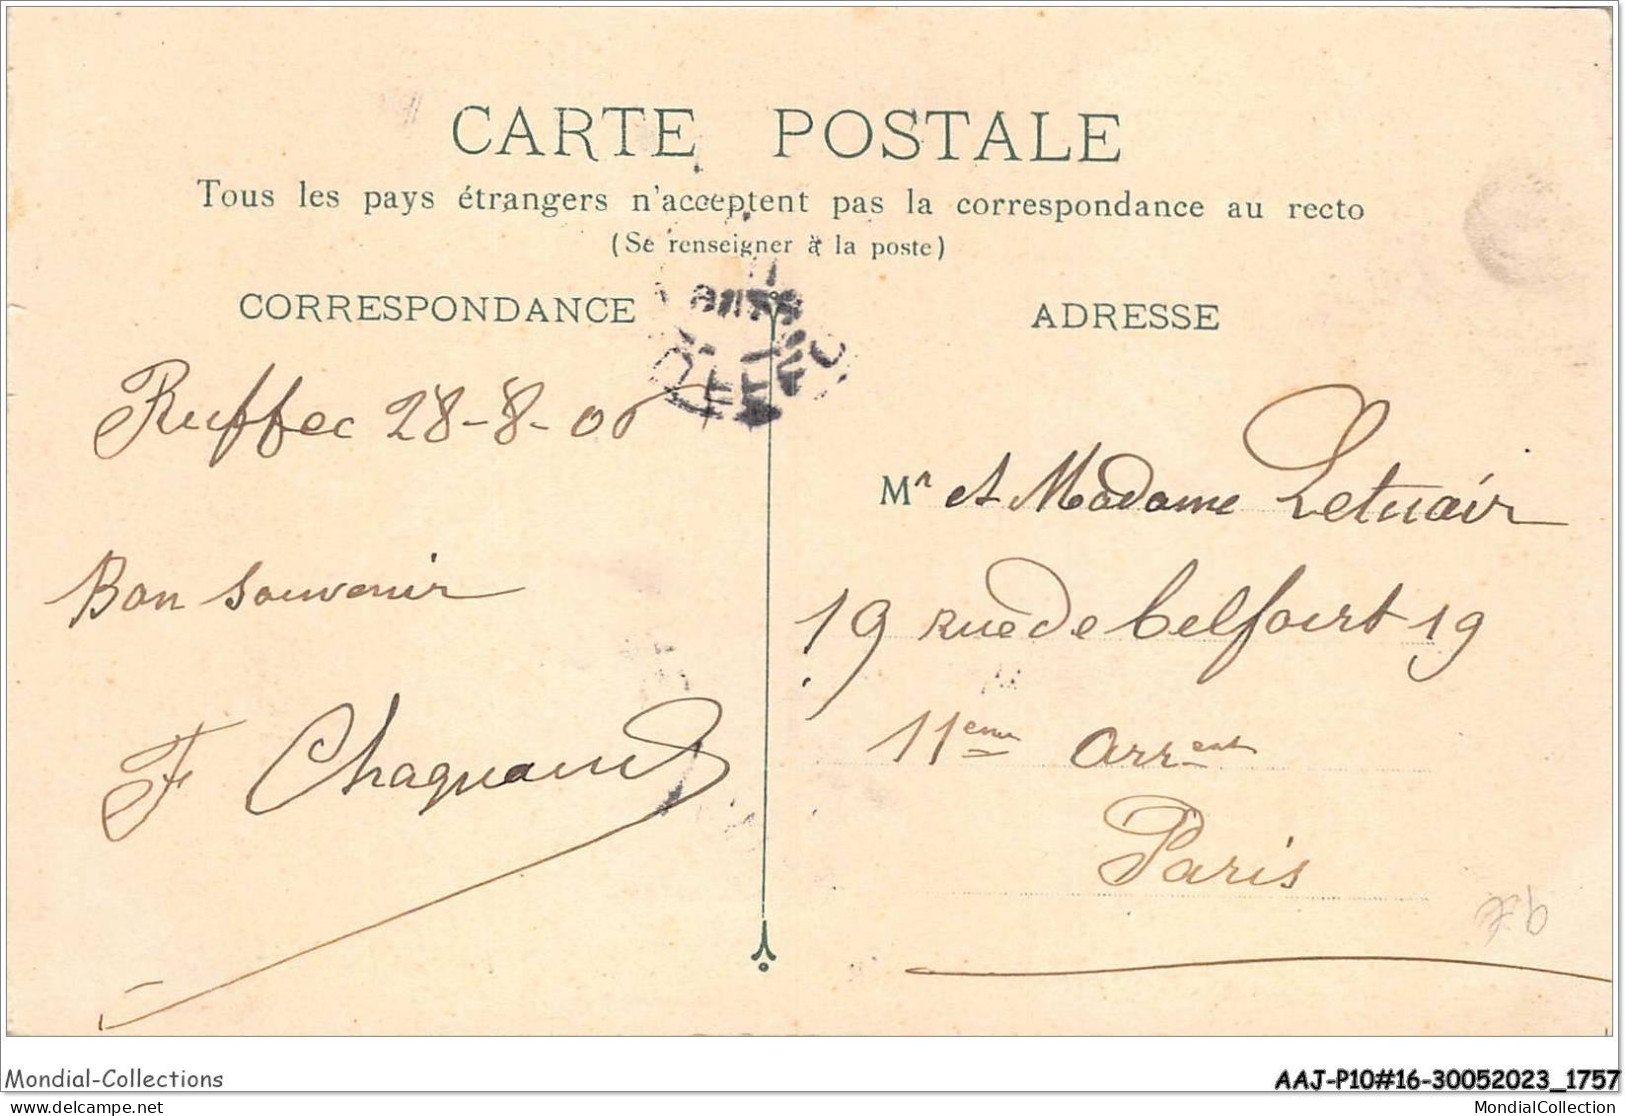 CARTE POSTALE
Tous les pays étrangers n'acceptent pas la correspondance au recto
(Se renseigner à la poste)
CORRESPONDANCE
ADRESSE
Ruffec 28-8-06
Bon souvenir
F Chagnaud
Mr et Madame Letuair
19 rue de belfort 19
11eme arrent
Paris
Mondial-Collections
AAJ-P10#16-30052023_1757
delcampe.net
MondialCollection